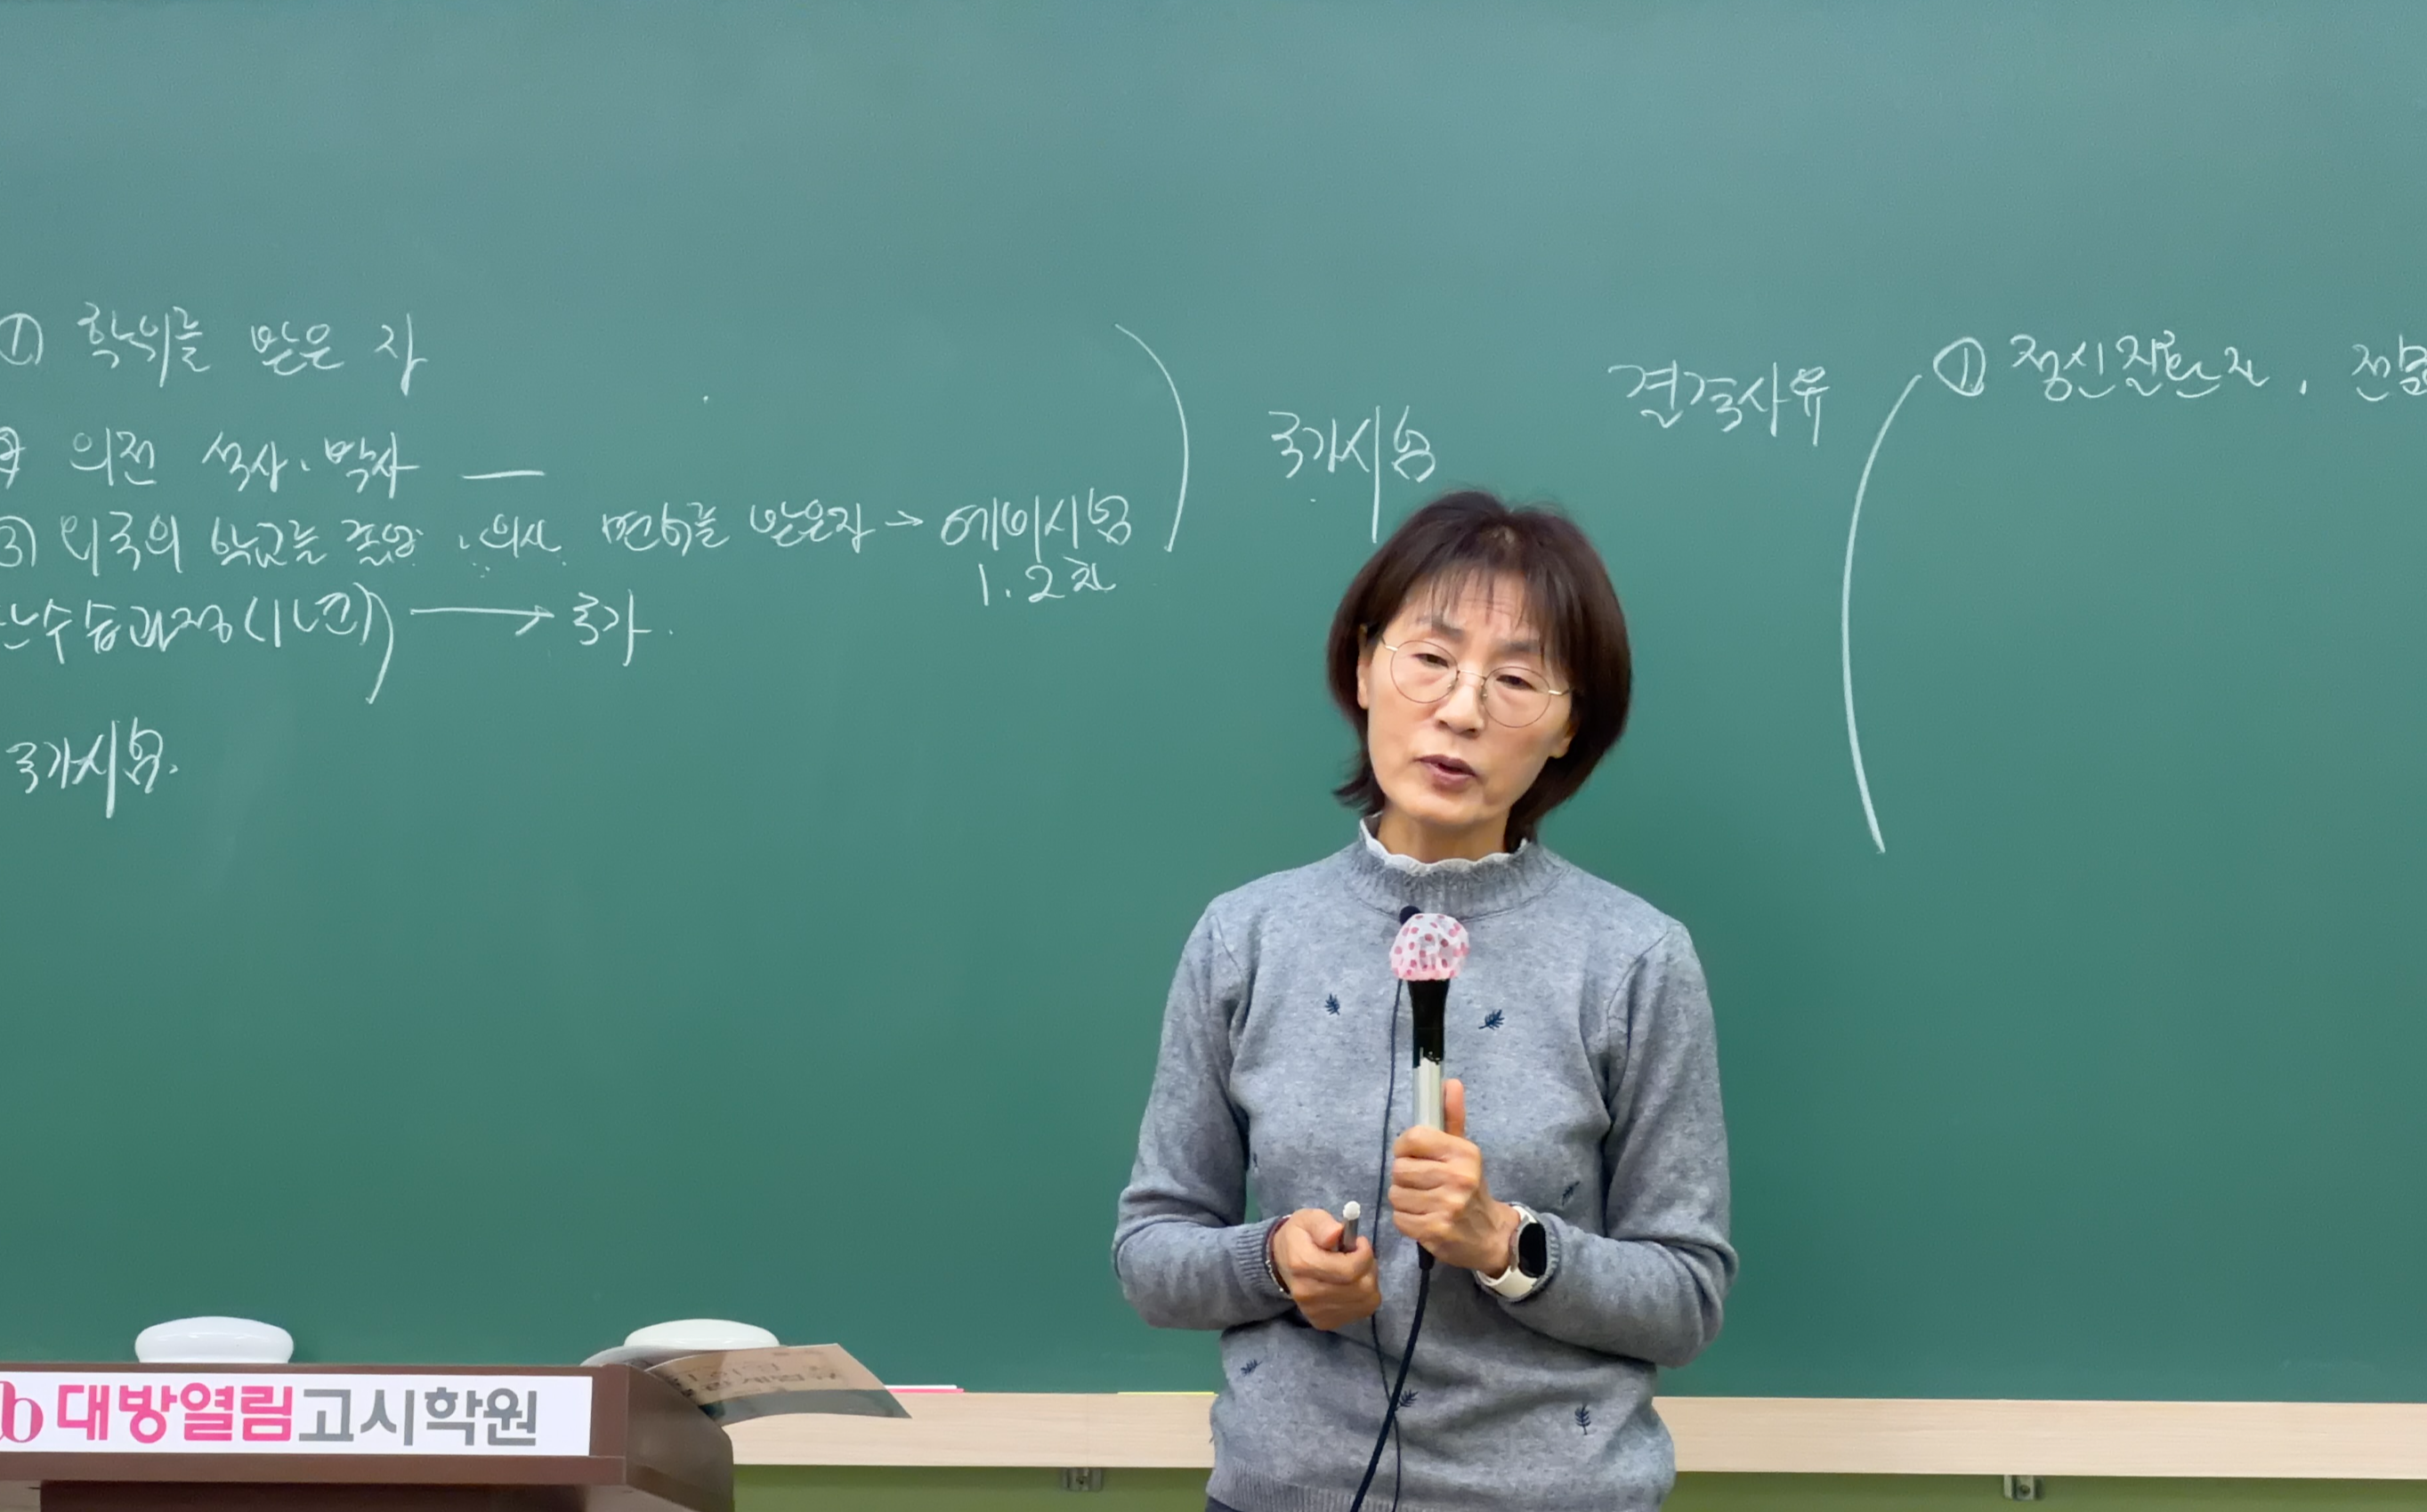 ① 학위를 받은 자
② 의전 석사·박사 —
③ 외국의 학교를 졸업, 의사 면허를 받은자 → 예비시험
1.2차
수습과정(1년) → 국가
국가시험.
국가시험
결격사유
① 정신질환자,
대방열림고시학원